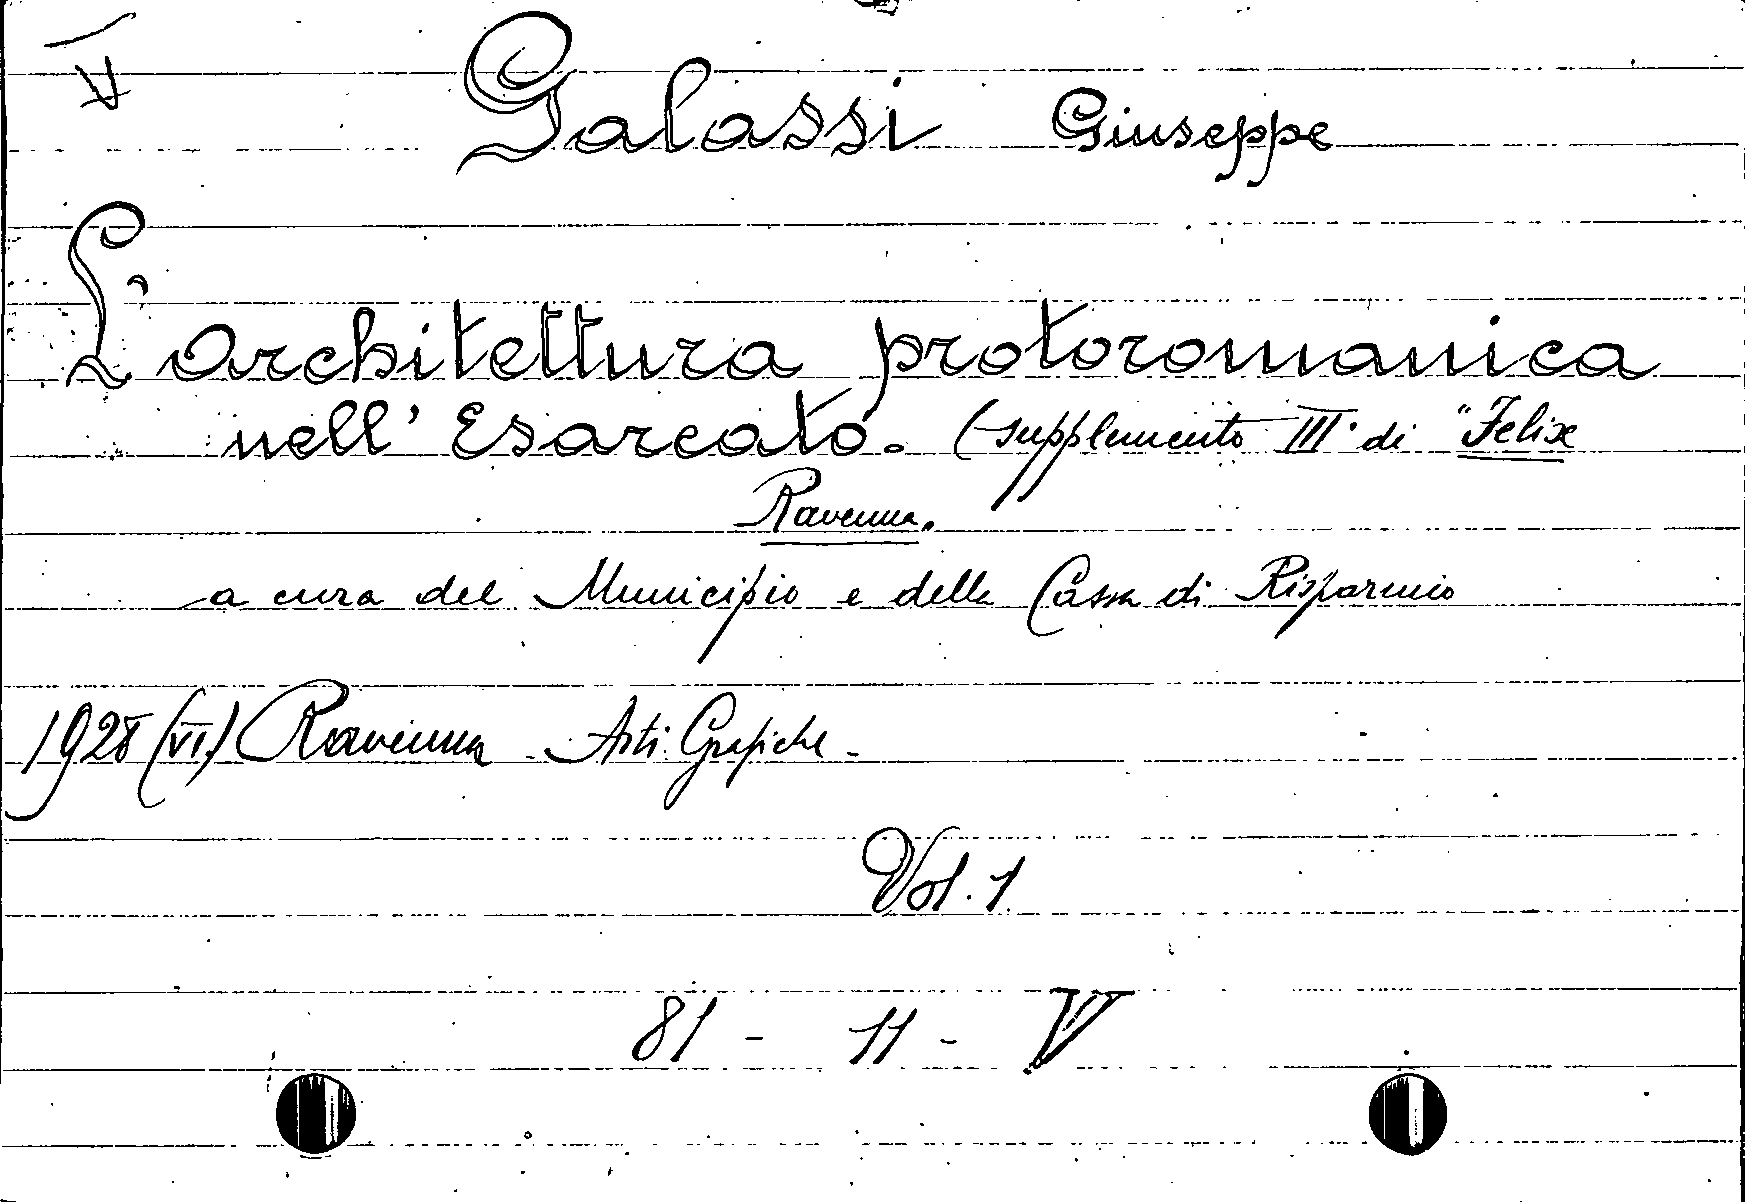 V
Galassi Giuseppe
L'architettura protoromanica
nell' Esarcato. (supplemento III. di "Felix
Ravenna.
a cura del Municipio e della Cassa di Risparmio
1928 (VI) Ravenna - Arti Grafiche -
Vol. 1
81 - 11 - V